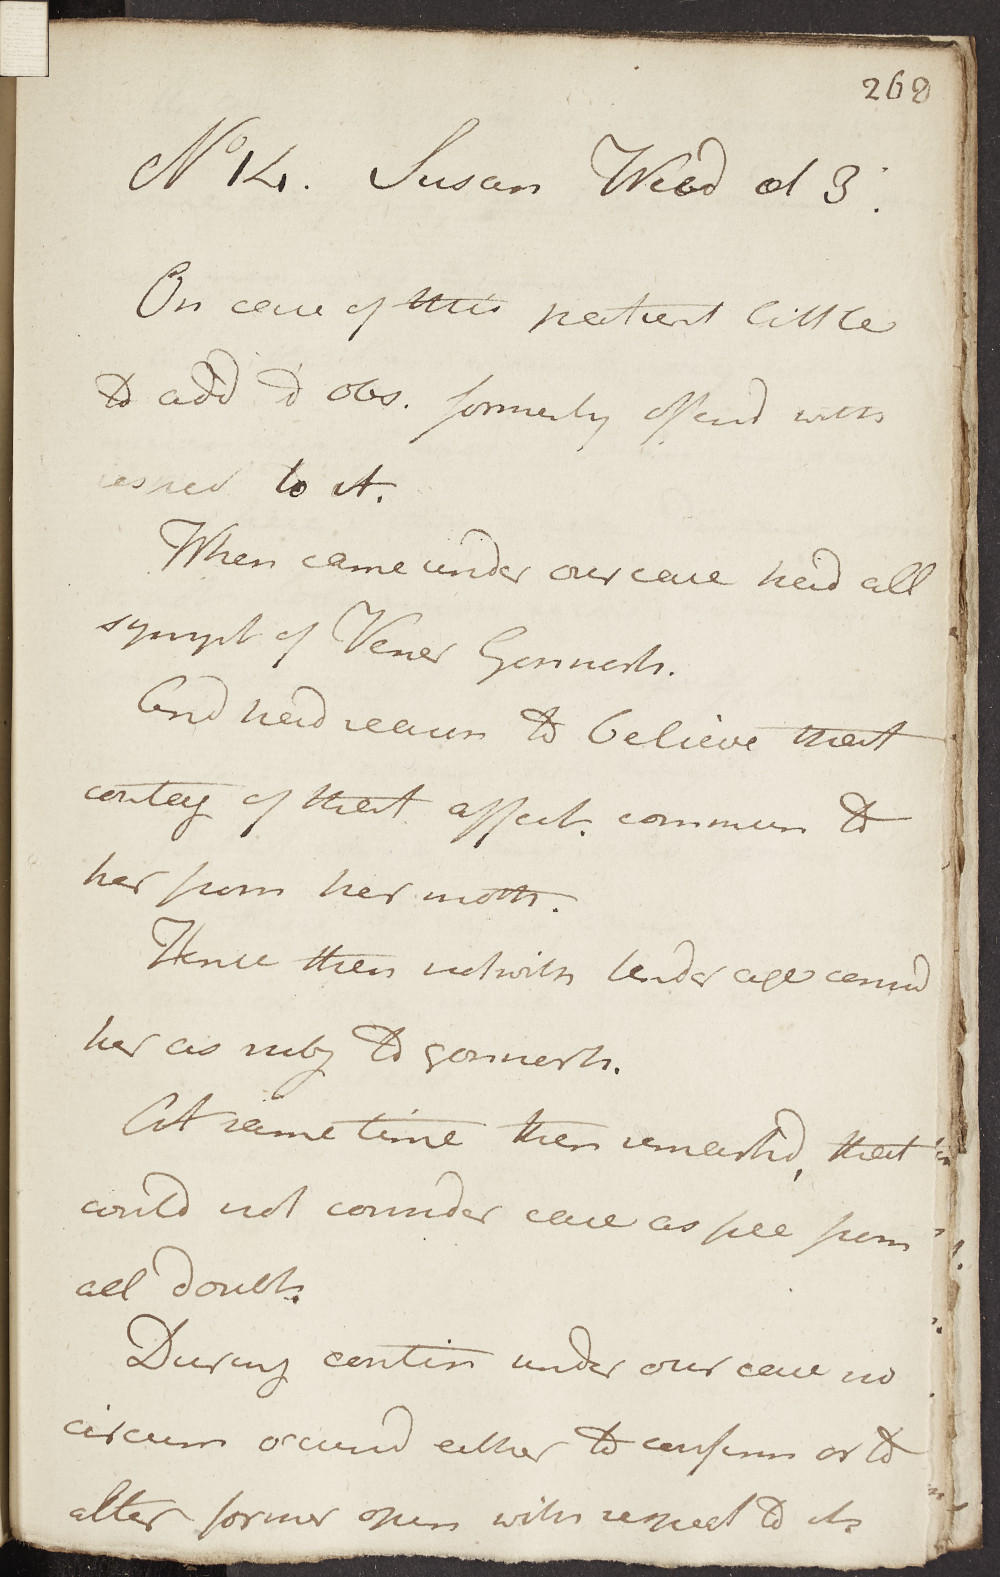 268
No 14. Susan Wood æt 3.
On case of this patient little
to add to obs. formerly offerd with
respect to it.
When came under our care had all
sympt of Vener Gonnorh.
And had reason to believe that
contag of that affect. commun to
her from her moth.
Hence then notwith tender age consid
her as subj to gonnorh.
At same time then remarkd, that
could not consider case as free from
all doubt.
During contin under our care no
circum occurrd either to confirm or to
alter former opin with respect to its